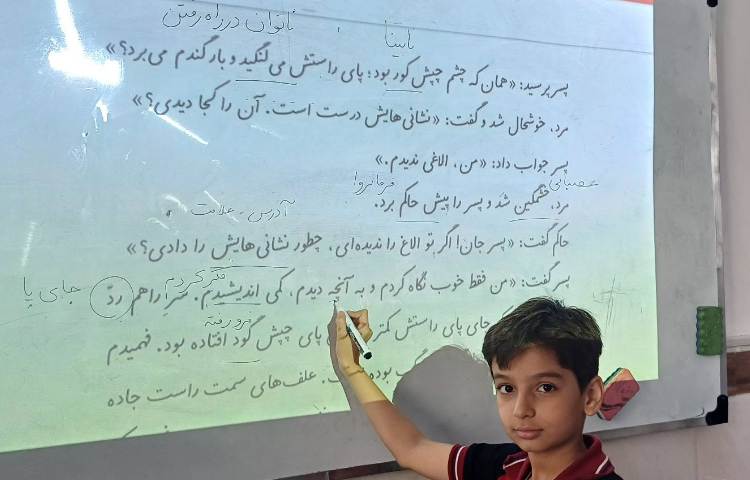 ناتوان در راه رفتن ، نابینا
پسر پرسید: «همان که چشم چپش کور بود؛ پای راستش می لنگید و بار گندم می برد؟»
مرد، خوشحال شد و گفت: «نشانی هایش درست است. آن را کجا دیدی؟»
پسر جواب داد: «من، الاغی ندیدم.»
عصبانی فرمانروا
مرد، خشمگین شد و پسر را پیش حاکم برد.
آدرس ، علامت
حاکم گفت: «پسر جان! اگر تو الاغ را ندیده ای، چطور نشانی هایش را دادی؟»
فکر کردم جای پا
پسر گفت: «من فقط خوب نگاه کردم و به آنچه دیدم، کمی اندیشیدم. را هم ردّ
فرو رفته
جای پای راستش پای چپش گود افتاده بود. فهمیدم
بوده است. علف های سمت راست جاده